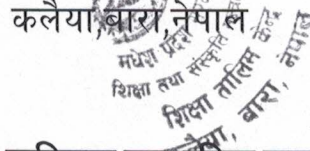 कलैया,बारा,नेपाल
मधेश प्रदेश
शिक्षा तथा संस्कृति
शिक्षा तालिम केन्द्र
कलैया, बारा, नेपाल